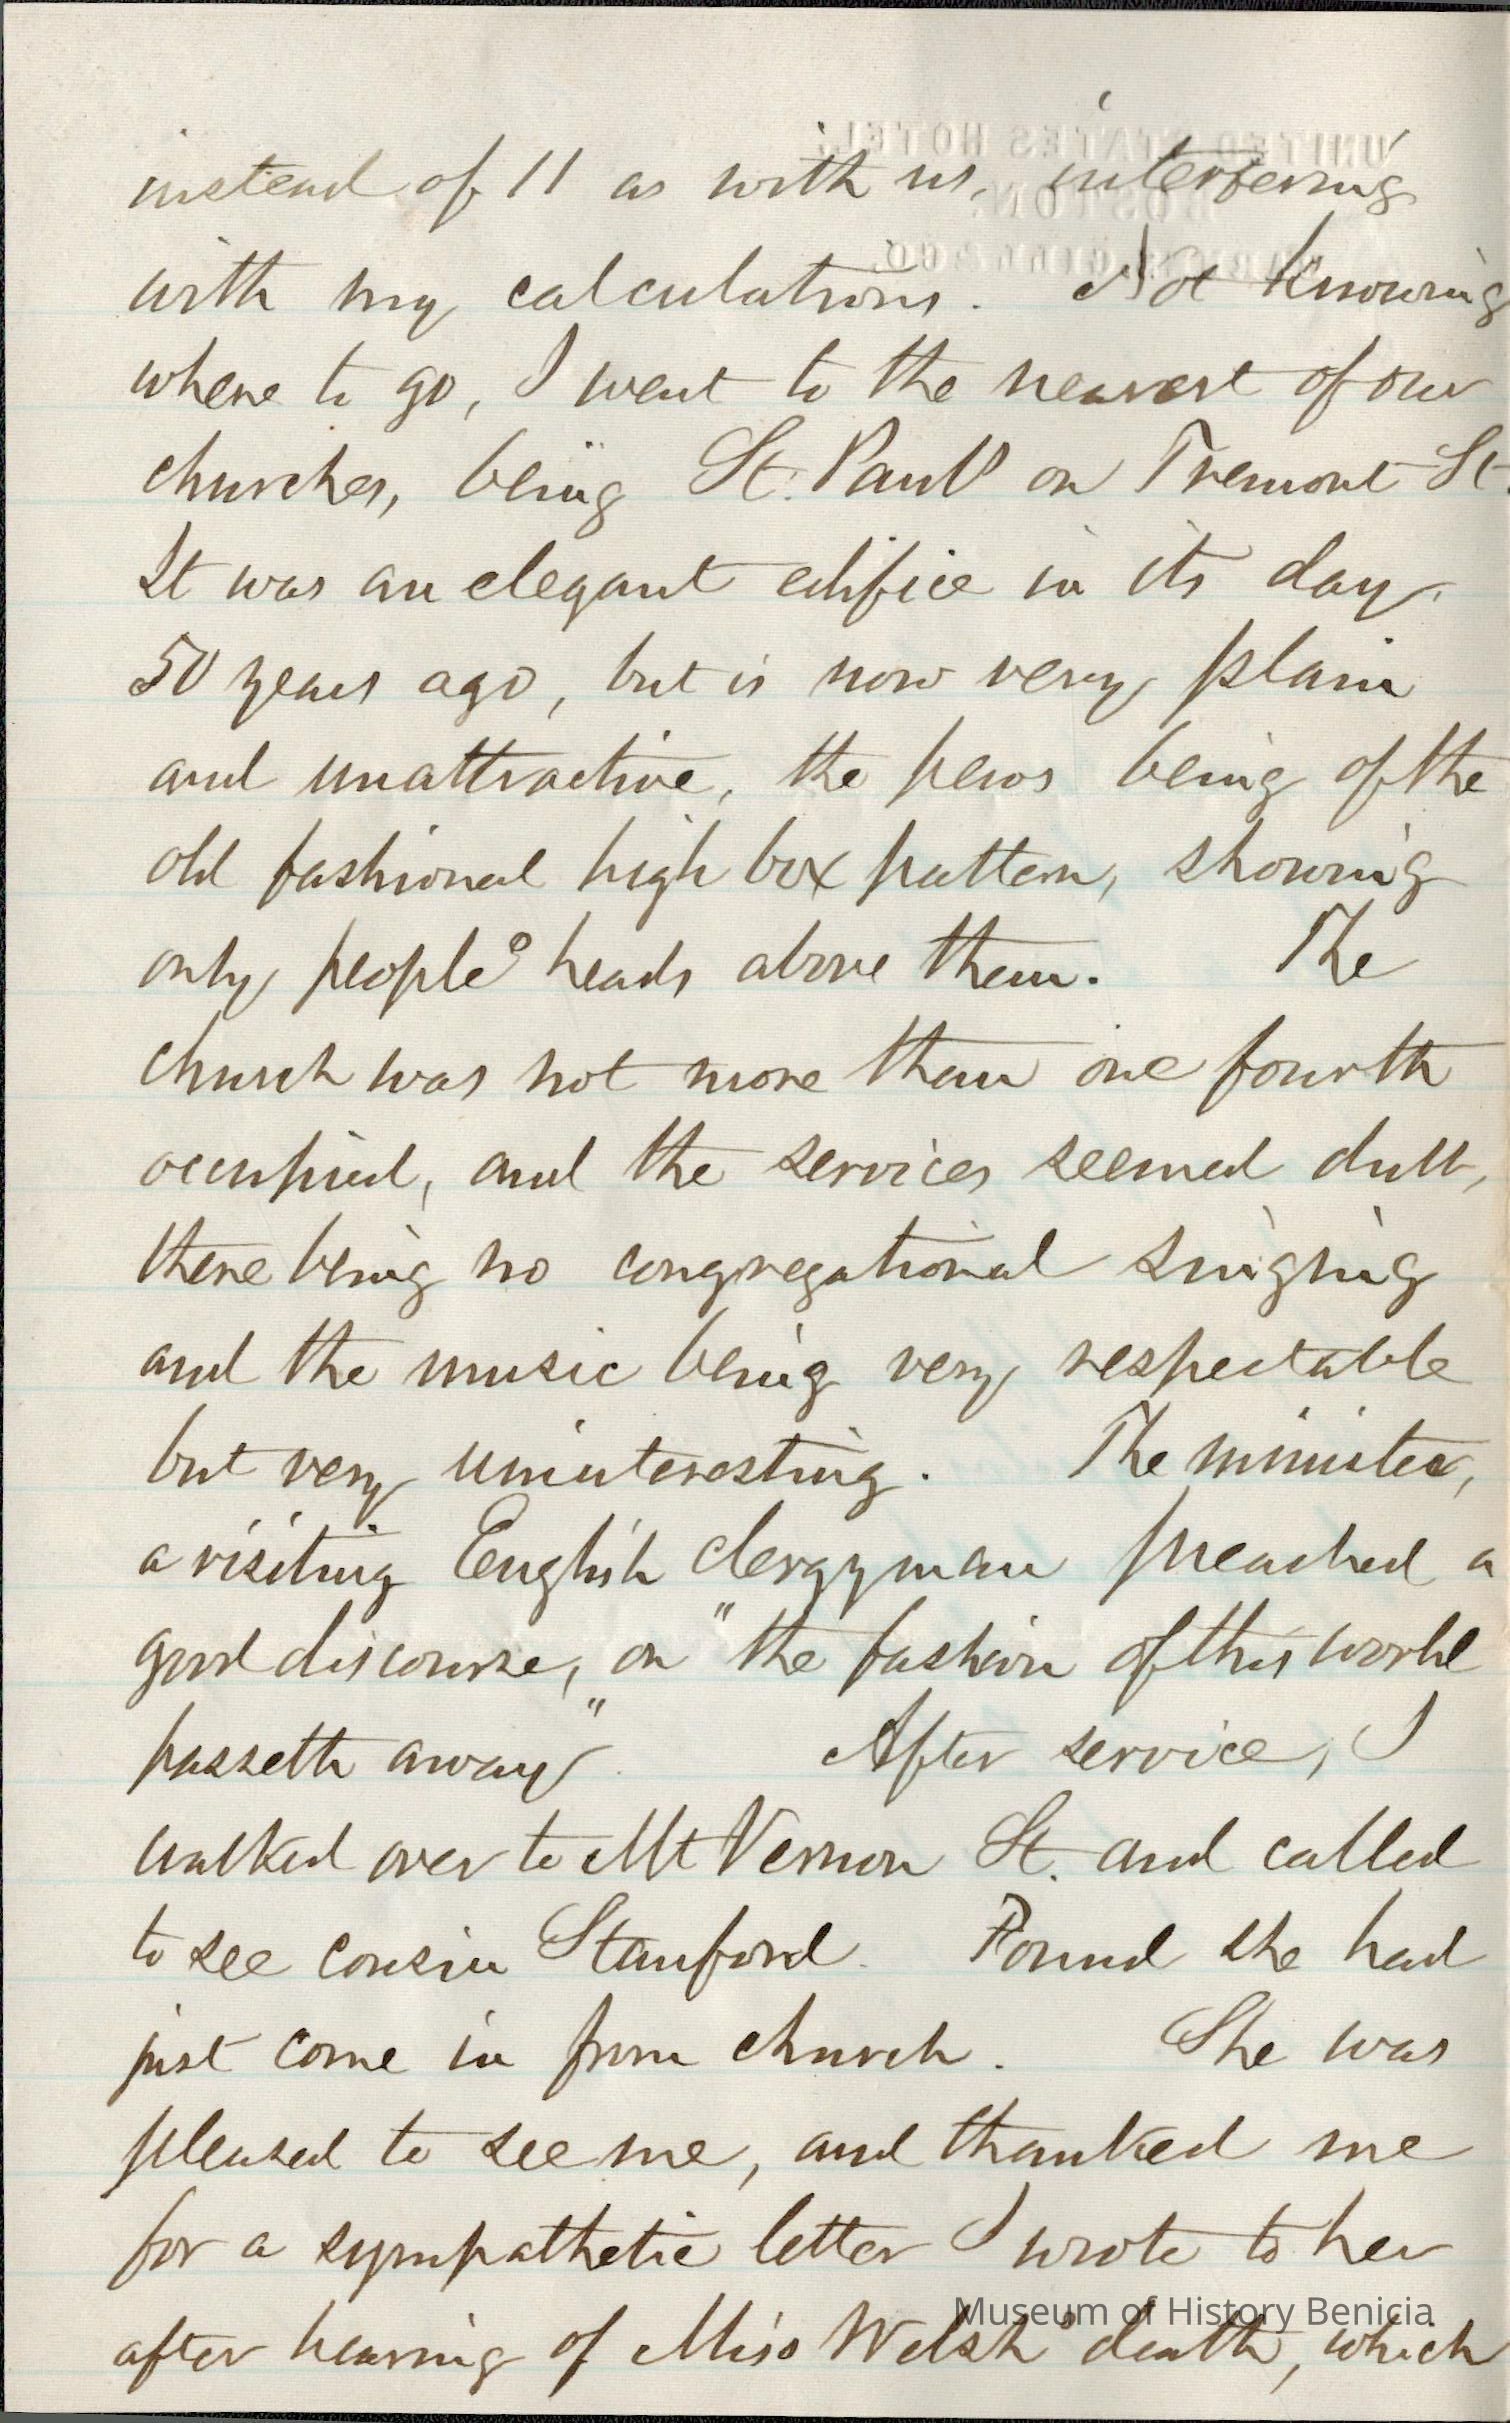 UNITED STATES HOTEL,
BOSTON.
instead of 11 as with us, interfering
with my calculations. Not knowing
where to go, I went to the nearest of our
churches, being St. Paul's on Tremont St.
It was an elegant edifice in its day,
50 years ago, but is now very plain
and unattractive, the pews being of the
old fashioned high box pattern, showing
only people's heads above them. The
church was not more than one fourth
occupied, and the services seemed dull,
there being no congregational singing
and the music being very respectable
but very uninteresting. The minister,
a visiting English clergyman preached a
good discourse, on "the fashion of this world
passeth away" After service, I
walked over to Mt Vernon St. and called
to see cousin Stanford. Found she had
just come in from church. She was
pleased to see me, and thanked me
for a sympathetic letter I wrote to her
after hearing of Miss Welsh's death, which
Museum of History Benicia